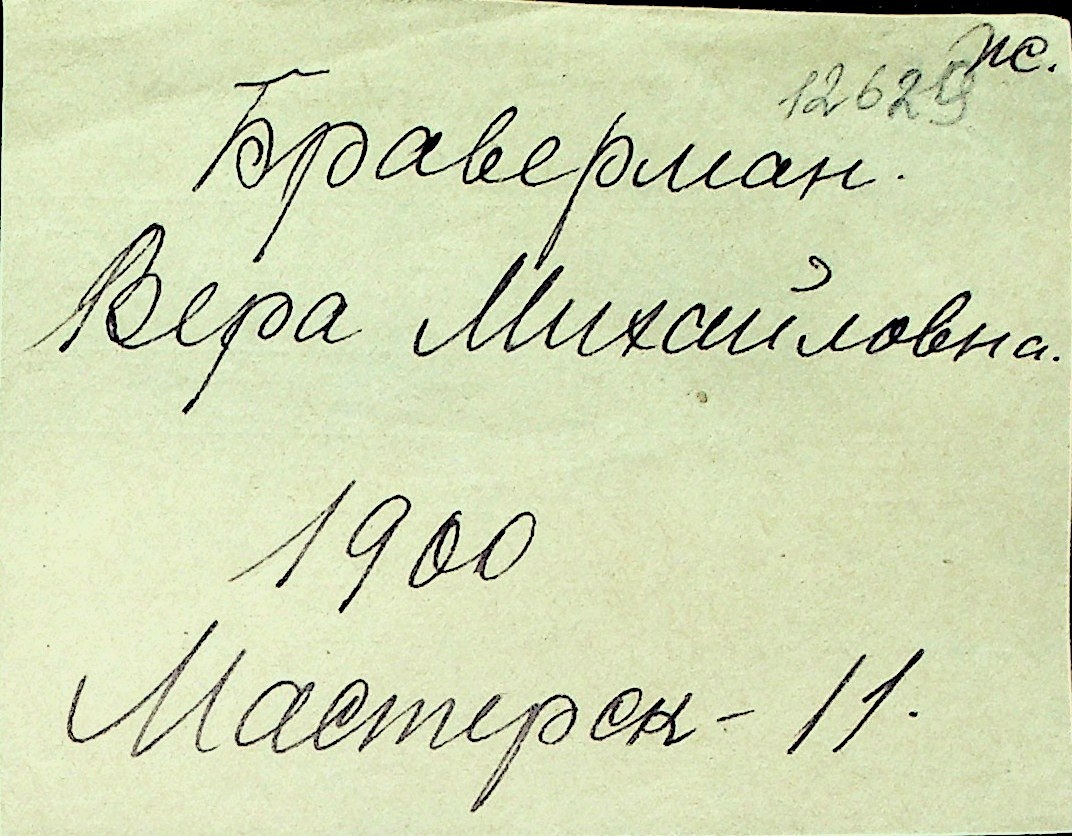 Браверман.
Вера Михайловна.
1900
Мастерск - 11.